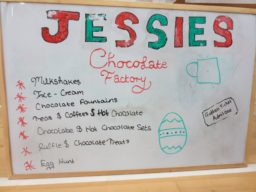 JESSIES
Chocolate
Factory
Milkshakes
Ice-Cream
Chocolate Fountains
Teas & Coffees & Hot Chocolate
Chocolate & Hot Chocolate Sets
Raffle & Chocolate Treats
Egg Hunt
Golden Ticket